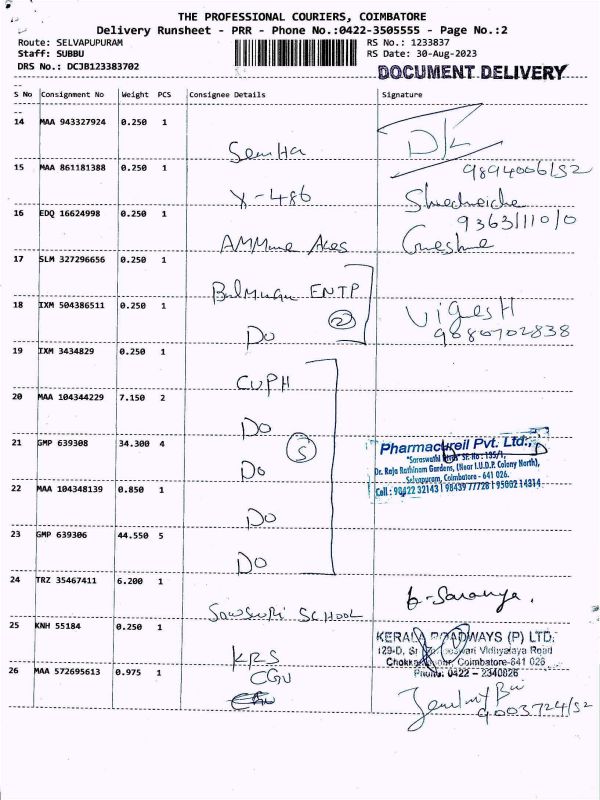 THE PROFESSIONAL COURIERS, COIMBATORE
Delivery Runsheet - PRR - Phone No.:0422-3505555 - Page No.:2
Route: SELVAPUPURAM
RS No.: 1233837
Staff: SUBBU
RS Date: 30-Aug-2023
DRS No.: DCJB123383702
DOCUMENT DELIVERY
S No Consignment No Weight PCS Consignee Details Signature
14 MAA 943327924 0.250 1
15 MAA 861181388 0.250 1
X-486
16 EDQ 16624998 0.250 1
17 SLM 327296656 0.250 1
ENTP
18 IXM 504386511 0.250 1
2
Do
VigesH
9080702838
19 IXM 3434829 0.250 1
CUPH
20 MAA 104344229 7.150 2
Do
21 GMP 639308 34.300 4
5
Do
Pharmacureil Pvt. Ltd.,
Dr. Raja Rathinam Gardens, (Near I.U.D.P. Colony North),
Selvapuram, Coimbatore - 641 026.
Cell : 90422 32143 | 98439 77728 | 95002 14314
22 MAA 104348139 0.850 1
Do
23 GMP 639306 44.550 5
Do
24 TRZ 35467411 6.200 1
SCHOOL
Saranya.
25 KNH 55184 0.250 1
KRS
KERALA ROADWAYS (P) LTD.
Vidhyalaya Road
Coimbatore-641 026
Phone: 0422 - 2340826
26 MAA 572695613 0.975 1
CGU